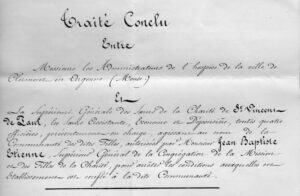 Traité Conclu
Entre
Messieurs les Administrateurs de l'hospice de la ville de
Clermont en Argonne (Meuse)
Et
La Supérieure Générale des Sœurs de la Charité de St Vincent
de Paul, les Sœurs Assistante, Econome et Dépensière, toutes quatre
officières, présentement en charge, agissant au nom de la
Communauté des dites Filles, autorisées par Monsieur Jean Baptiste
Etienne, Supérieur Général de la Congrégation de la Mission
et des Filles de la Charité, pour arrêter les conditions auxquelles cet
Etablissement est confié à la dite Communauté.